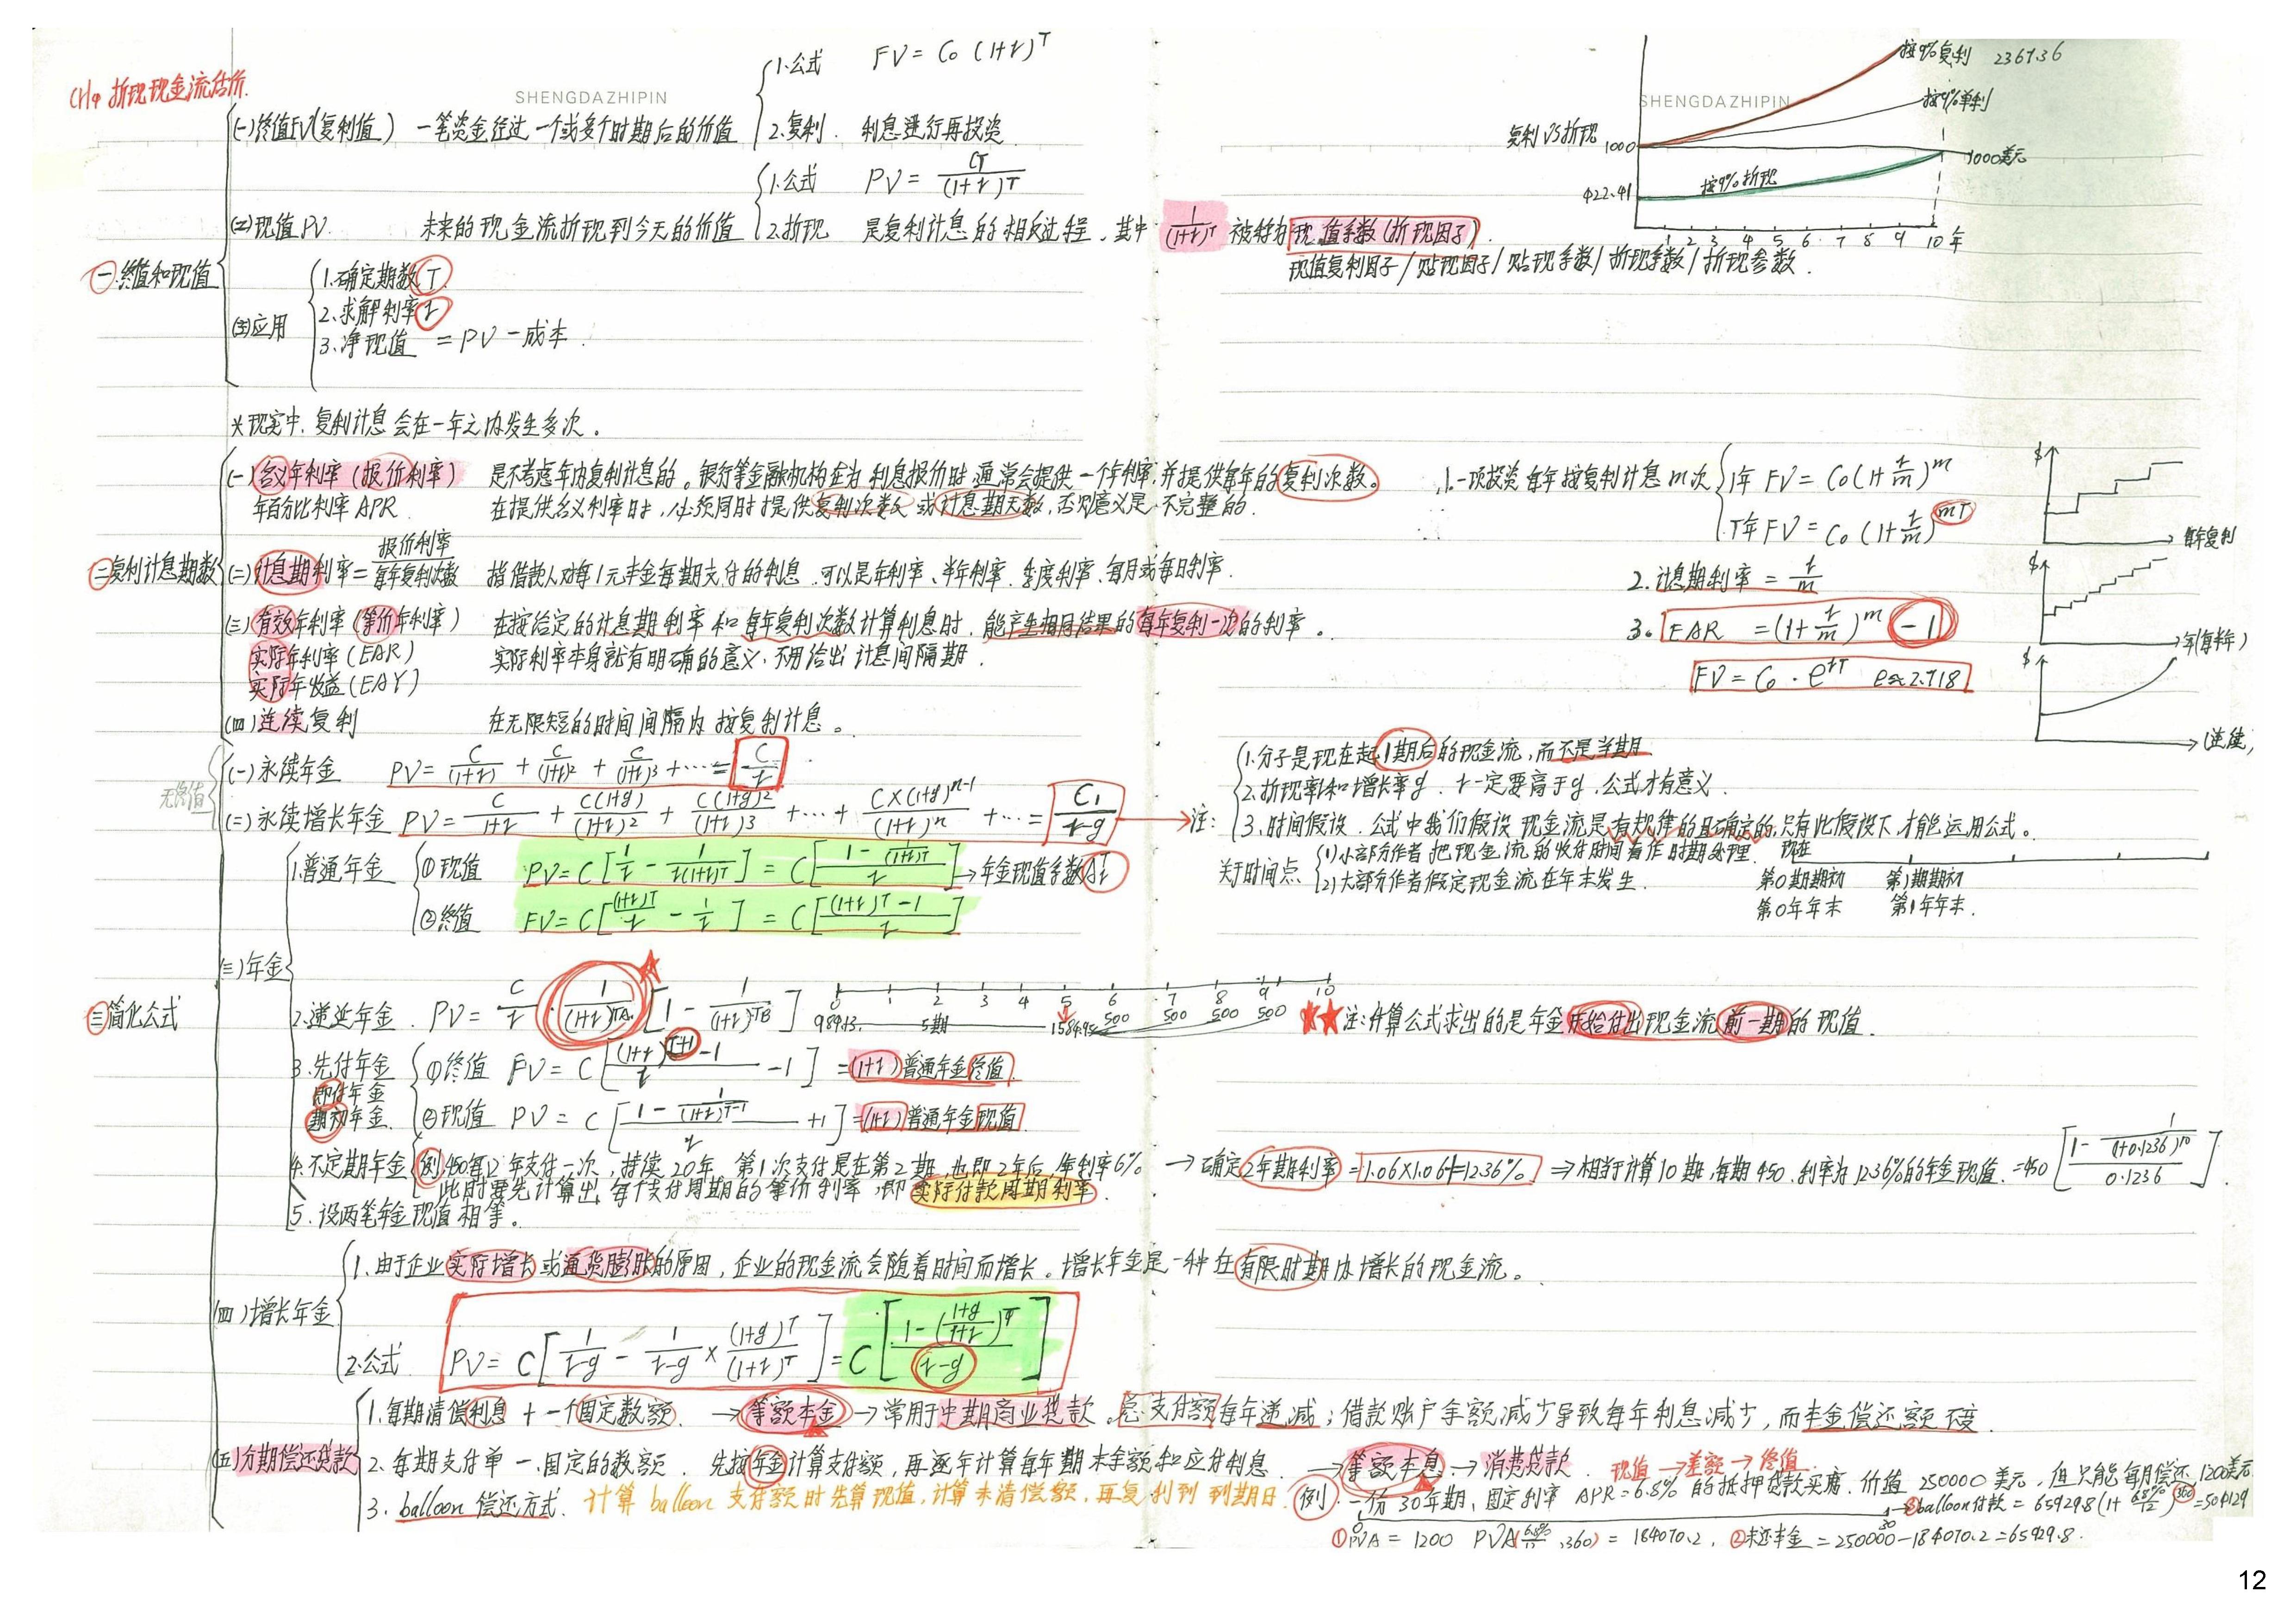 CH4 折现现金流估价.
SHENGDAZHIPIN
SHENGDAZHIPIN
一.终值和现值
(一)终值FV(复利值) 一笔资金经过一个或多个时期后的价值
1.公式 FV = C₀ (1+r)^T
2.复利. 利息进行再投资
(二)现值PV. 未来的现金流折现到今天的价值
1.公式 PV = CT/(1+r)^T
2.折现 是复利计息的相反过程. 其中 1/(1+r)^T 被称为现值系数(折现因子).
现值复利因子/贴现因子/贴现系数/折现系数/折现参数.
复利VS折现
按9%复利 2367.36
按9%单利
1000
1000美元
422.41
按9%折现
1 2 3 4 5 6 7 8 9 10 年
(三)应用
1.确定期数T
2.求解利率r
3.净现值 = PV - 成本.
二.复利计息期数
*现实中,复利计息会在一年之内发生多次。
(一)名义年利率(报价利率) 是不考虑年内复利计息的。银行等金融机构在为利息报价时通常会提供一个年利率,并提供每年的复利次数。
年百分比利率APR. 在提供名义利率时,必须同时提供复利次数或计息期天数,否则意义是不完整的.
1.一项投资每年按复利计息m次
1年 FV = C₀(1+r/m)^m
T年 FV = C₀(1+r/m)^mT
$ 每年复利
(二)计息期利率 = 报价利率/每年复利次数 指借款人对每1元本金每期支付的利息.可以是年利率、半年利率.季度利率、每月或每日利率.
2.计息期利率 = r/m
(三)有效年利率(等价年利率) 在按给定的计息期利率和每年复利次数计算利息时,能产生相同结果的每年复利一次的利率。
实际年利率(EAR) 实际利率本身就有明确的意义,不用给出计息间隔期.
实际年收益(EAY)
3. EAR = (1+r/m)^m -1
$ 年(每半年)
(四)连续复利 在无限短的时间间隔内按复利计息。
FV = C₀·e^rT e≈2.718
$ (连续)
三.简化公式
无终值
(一)永续年金 PV = C/(1+r) + C/(1+r)² + C/(1+r)³ + ··· = C/r
(二)永续增长年金 PV = C/(1+r) + C(1+g)/(1+r)² + C(1+g)²/(1+r)³ + ··· + C×(1+g)^n-1/(1+r)^n + ··· = C₁/(r-g)
注:
1.分子是现在起1期后的现金流,而不是当期
2.折现率r和增长率g. r一定要高于g,公式才有意义.
3.时间假设.公式中我们假设现金流是有规律的且确定的,只有此假设下才能运用公式。
关于时间点
(1)小部分作者把现金流的收付时间看作时期处理.
(2)大部分作者假定现金流在年末发生.
现在
第0期期初 第1期期初
第0年年末 第1年年末.
(三)年金
1.普通年金
①现值 PV = C[1/r - 1/r(1+r)^T] = C[(1 - 1/(1+r)^T)/r] → 年金现值系数
②终值 FV = C[(1+r)^T/r - 1/r] = C[((1+r)^T - 1)/r]
2.递延年金. PV = C/r · 1/(1+r)^TA [1 - 1/(1+r)^TB]
0 1 2 3 4 5 6 7 8 9 10
984.13 5期 1584.95 500 500 500 500
注:年金公式求出的是年金开始付出现金流前一期的现值.
3.先付年金
即付年金
期初年金.
①终值 FV = C[((1+r)^T+1 - 1)/r - 1] = (1+r)普通年金终值
②现值 PV = C[(1 - 1/(1+r)^T-1)/r + 1] = (1+r)普通年金现值
4.不定期年金 例.450每2年支付一次,持续20年.第1次支付是在第2期,也即2年后,年利率6% → 确定2年期利率 = 1.06×1.06-1=12.36% ⇒ 相当于计算10期,每期450,利率为12.36%的年金现值. =450[(1 - 1/(1+0.1236)^10)/0.1236].
此时要先计算出每个支付周期的等价利率,即实际付款周期利率.
5.设两笔年金现值相等。
(四)增长年金
1.由于企业实际增长或通货膨胀的原因,企业的现金流会随着时间而增长。增长年金是一种在有限时期内增长的现金流。
2.公式 PV = C[1/(r-g) - 1/(r-g) × (1+g)^T/(1+r)^T] = C[(1 - ((1+g)/(1+r))^T)/(r-g)]
(五)分期偿还贷款
1.每期清偿利息 + 一个固定数额. → 等额本金 → 常用于中期商业贷款.总支付额每年递减;借款账户余额减少导致每年利息减少,而本金偿还额不变.
2.每期支付单一.固定的数额. 先按年金计算支付额,再逐年计算每年期末余额和应付利息. → 等额本息 → 消费贷款.
现值 → 差额 → 终值.
3. balloon 偿还方式. 计算 balloon 支付额时先算现值,计算未清偿额,再复利到到期日.
例.一份30年期,固定利率 APR=6.8% 的抵押贷款买房.价值 250000 美元,但只能每月偿还1200美元
0 30
①PVA = 1200 PVA(6.8%/12,360) = 184070.2, ②未还本金 = 250000-184070.2=65929.8.
③balloon付款 = 65929.8(1+6.8%/12)^360=504129
12